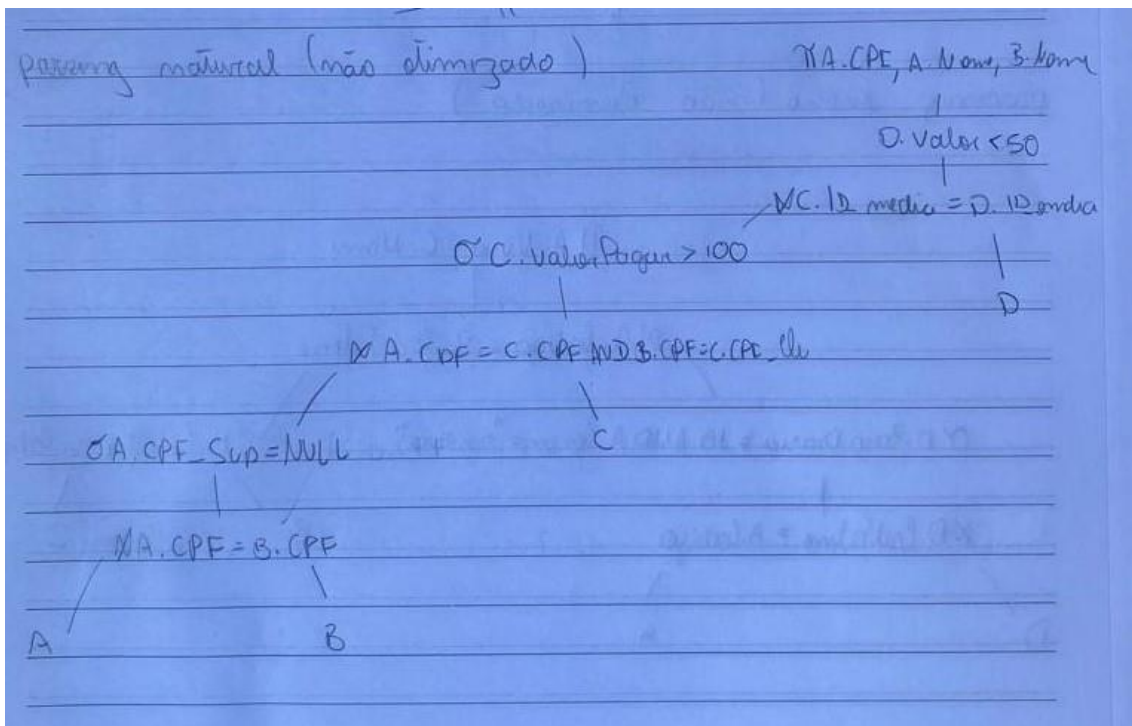 parsing natural (não otimizado)
π A.CPF, A.Nome, B.Nome
D.Valor < 50
⋈ C.ID media = D.ID media
σ C.Valor Pagar > 100
D
⋈ A.CPF = C.CPF AND B.CPF = C.CPF_Cli
σ A.CPF_Sup = NULL
C
⋈ A.CPF = B.CPF
A
B